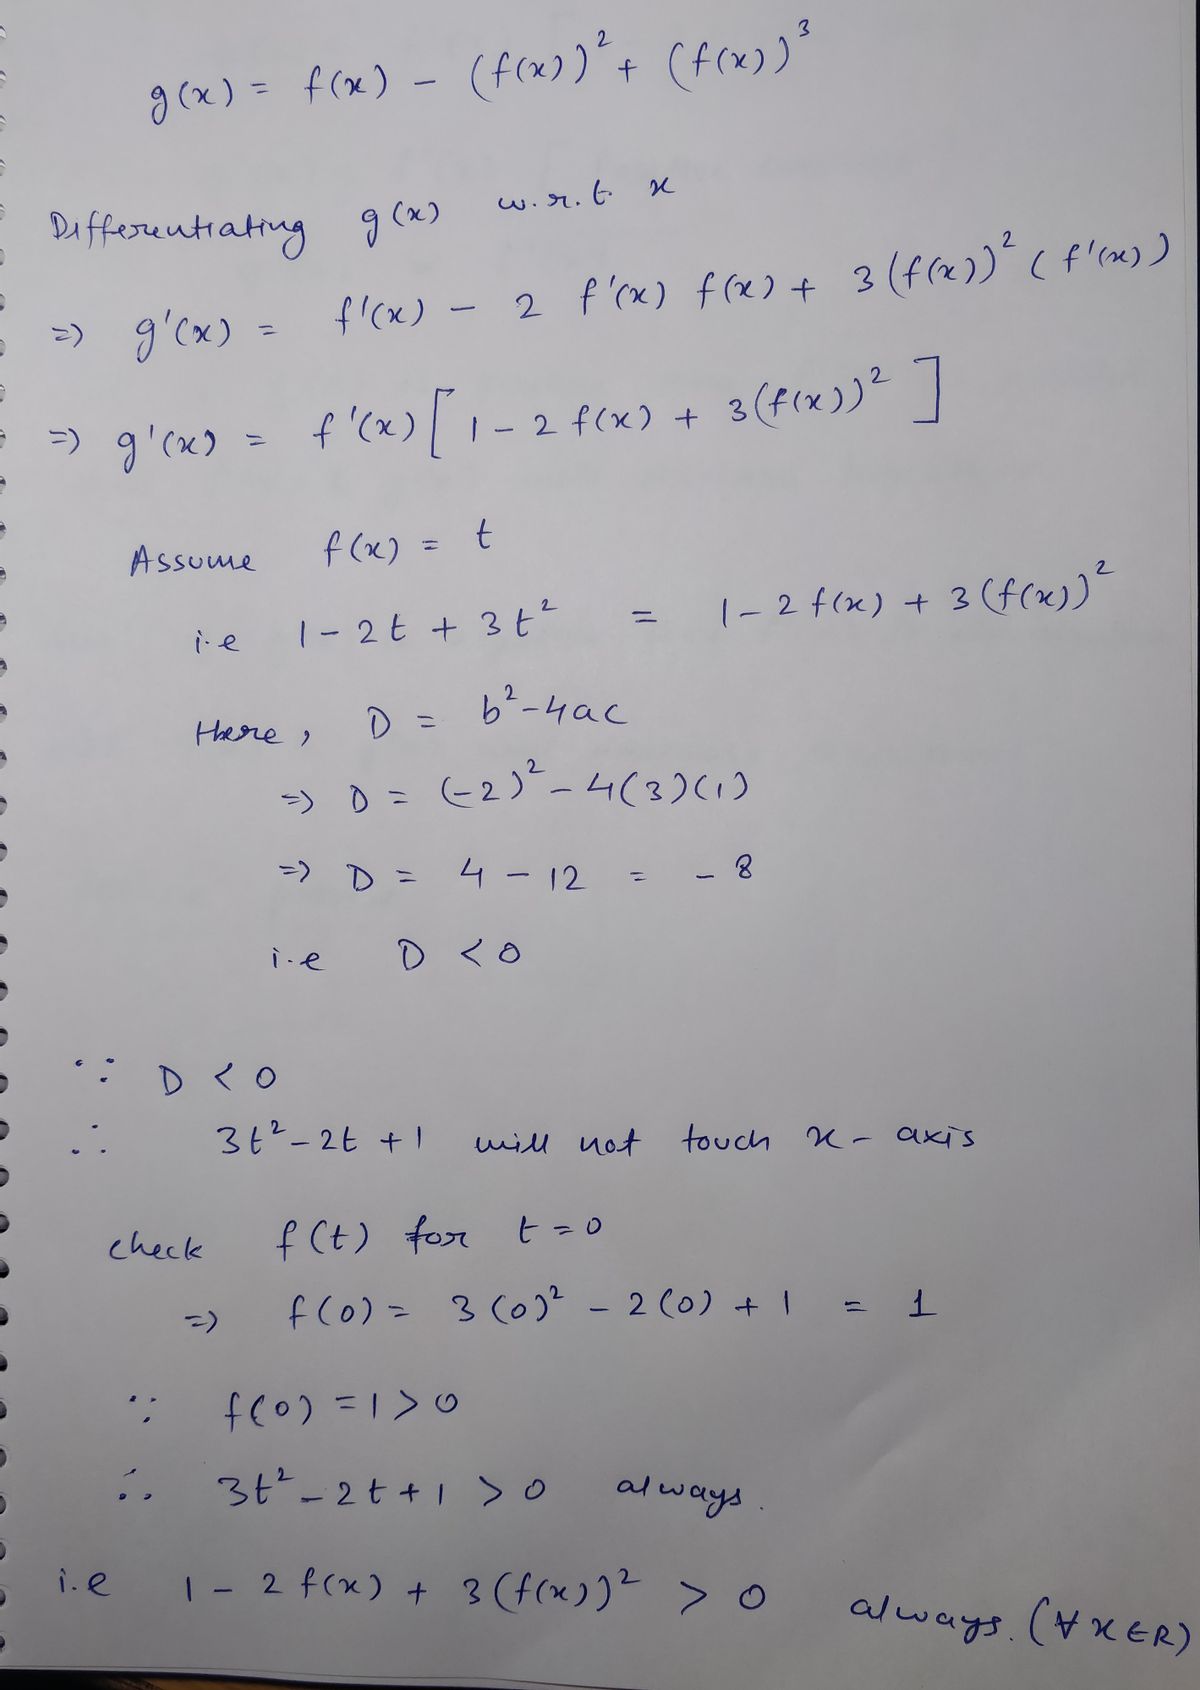 g(x) = f(x) - (f(x))² + (f(x))³
Differentiating g(x) w.r.t. x
=> g'(x) = f'(x) - 2 f'(x) f(x) + 3(f(x))² (f'(x))
=> g'(x) = f'(x) [ 1 - 2 f(x) + 3(f(x))² ]
Assume f(x) = t
i.e 1 - 2t + 3t² = 1 - 2 f(x) + 3(f(x))²
Here, D = b² - 4ac
=> D = (-2)² - 4(3)(1)
=> D = 4 - 12 = - 8
i.e D < 0
∵ D < 0
∴ 3t² - 2t + 1 will not touch x - axis
check f(t) for t = 0
=> f(0) = 3(0)² - 2(0) + 1 = 1
∵ f(0) = 1 > 0
∴ 3t² - 2t + 1 > 0 always.
i.e 1 - 2 f(x) + 3(f(x))² > 0 always. (∀ x ∈ R)